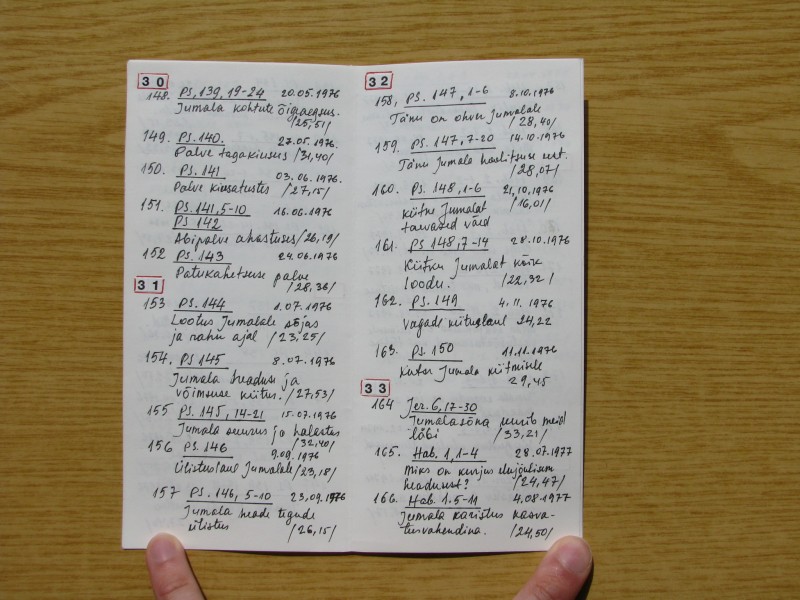 30
148. Ps. 139, 19-24 20.05.1976
Jumala kohtute õigeaegsus.
/25,51/
149. Ps. 140. 27.05.1976.
Palve tagakiusus /31,40/
150. Ps. 141 03.06.1976.
Palve kiusatustes /27,15/
151. Ps. 141, 5-10 16.06.1976
Ps 142
Abipalve ahastuses /26,19/
152 Ps. 143 24.06.1976
Patukahetsuse palve
/28,36/
31
153 Ps. 144 1.07.1976
Lootus Jumalale sõjas
ja rahu ajal /23,25/
154. Ps 145 8.07.1976
Jumala headuse ja
võimsuse kiitus. /27,53/
155 Ps. 145, 14-21 15.07.1976
Jumala suurus ja halastus
/32,40/
156 Ps. 146 9.09.1976
Ülistuslaul Jumalale /23,18/
157 Ps. 146, 5-10 23.09.1976
Jumala heade tegude
ülistus /26,15/
32
158, Ps. 147, 1-6 8.10.1976
Tänu on ohver Jumalale
/28,40/
159. Ps. 147, 7-20 14.10.1976
Tänu Jumala hoolitsuse eest.
/28,07/
160. Ps. 148, 1-6 21.10.1976
Kiitku Jumalat /16,01/
taevased väed
161. Ps 148, 7-14 28.10.1976
Kiitku Jumalat kõik
loodu. /22,32/
162. Ps. 149 4.11.1976
Vagade kiituslaul 24,22
163. Ps. 150 11.11.1976
Kutse Jumala kiitmisele
29,45
33
164 Jer. 6, 17-30
Jumala sõna meid
läbi /33,21/
165. Hab. 1, 1-4 28.07.1977
Miks on kurjus elujõulisem
headusest? /24,47/
166. Hab. 1. 5-11 4.08.1977
Jumala karistus kasva-
tusvahendina. /24,50/